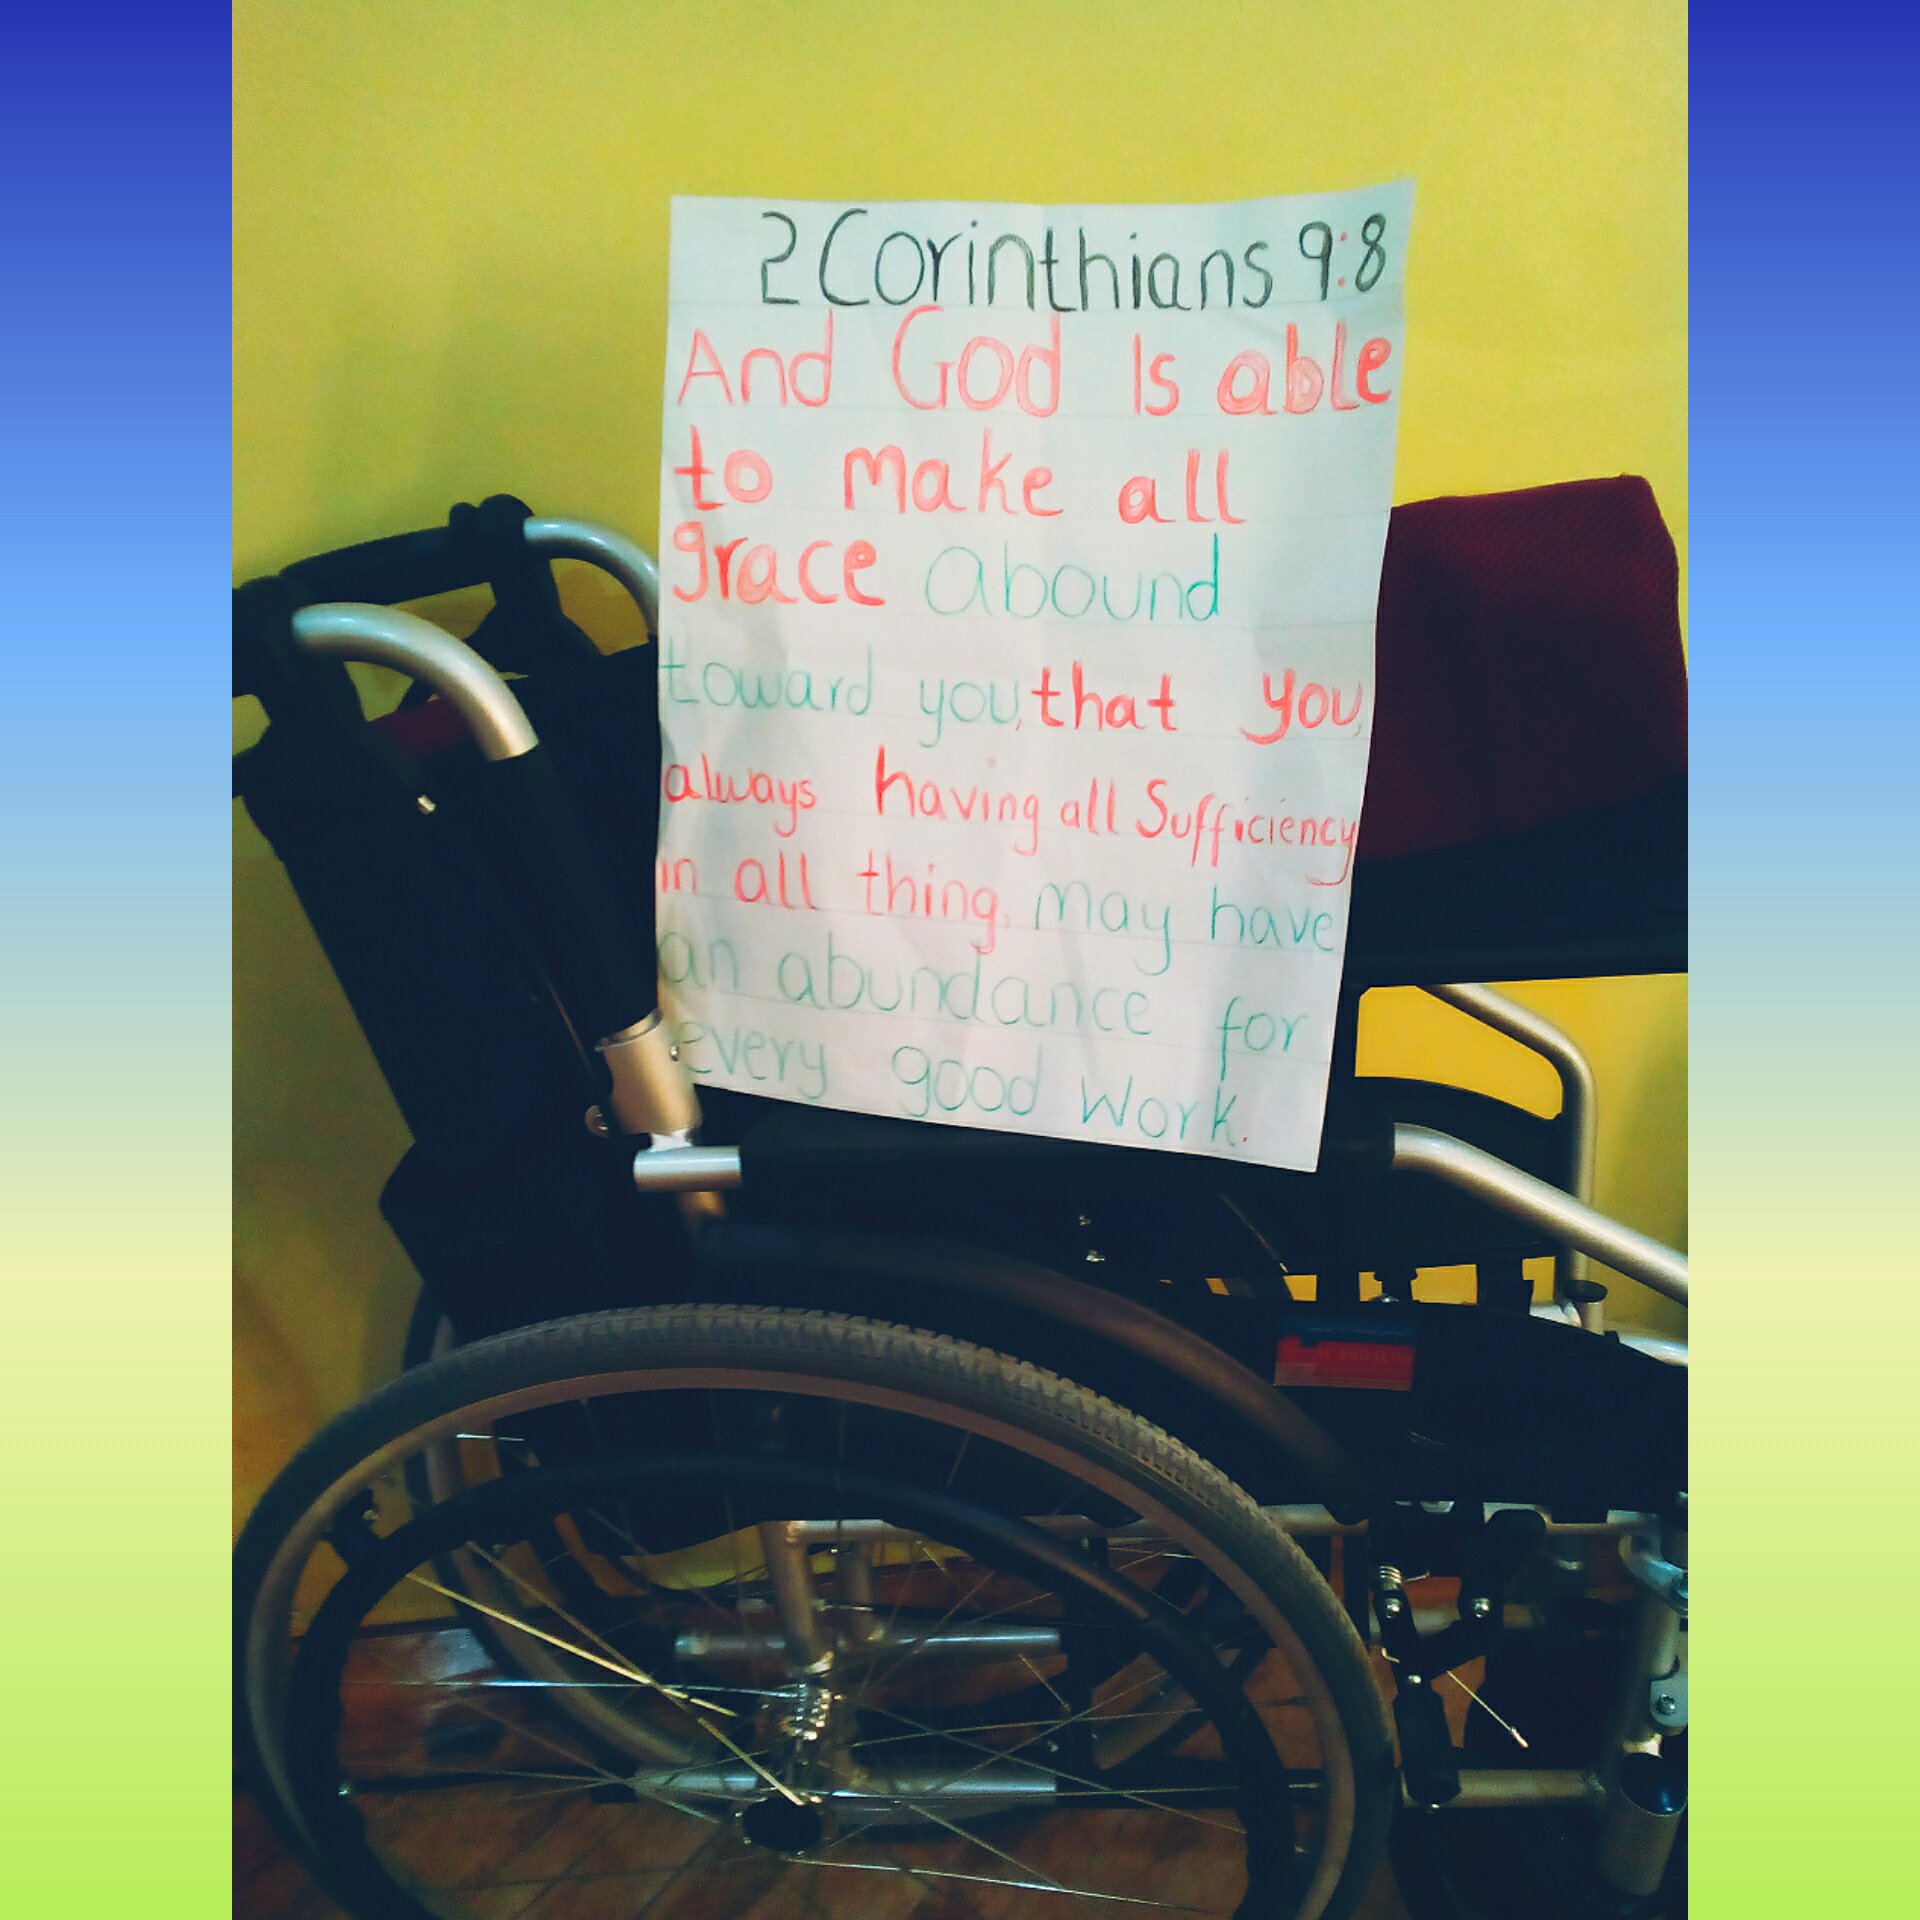 2 Corinthians 9:8
And God Is able
to make all
grace abound
toward you, that you,
always having all Sufficiency
in all thing, may have
an abundance for
every good Work.